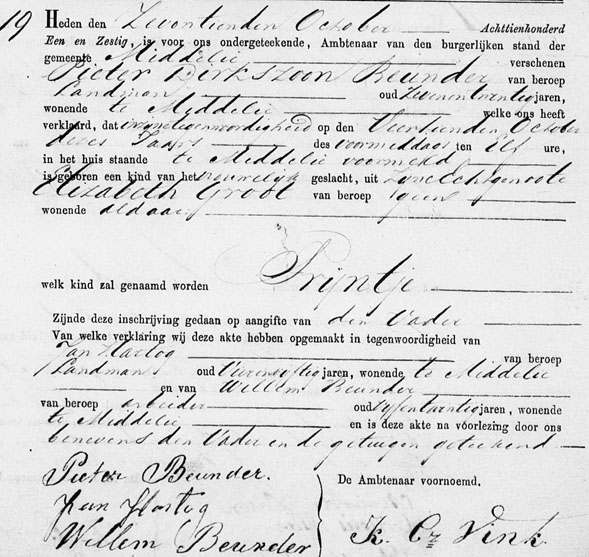 19 Heden den Zeventienden October Achttienhonderd
Een en Zestig, is voor ons ondergeteekende, Ambtenaar van den burgerlijken stand der
gemeente Middelie verschenen
Pieter Dirkszoon Beunder van beroep
Landman oud Zevenentwintig jaren,
wonende te Middelie welke ons heeft
verklaard, dat in zijne tegenwoordigheid op den Veertienden October
dezes Jaars des voormiddags ten Elf ure,
in het huis staande te Middelie voormeld
is geboren een kind van het vrouwelijk geslacht, uit zijne Echtgenoote
Elizabeth Groot van beroep geen
wonende aldaar
welk kind zal genaamd worden Trijntje
Zijnde deze inschrijving gedaan op aangifte van den Vader
Van welke verklaring wij deze akte hebben opgemaakt in tegenwoordigheid van
Jan Hartog van beroep
Landman oud jaren, wonende te Middelie
en van Willem Beunder
van beroep arbeider oud jaren, wonende
te Middelie en is deze akte na voorlezing door ons
benevens den Vader en de getuigen geteekend
Pieter Beunder.
Jan Hartog
Willem Beunder
De Ambtenaar voornoemd.
K. Cz Vink